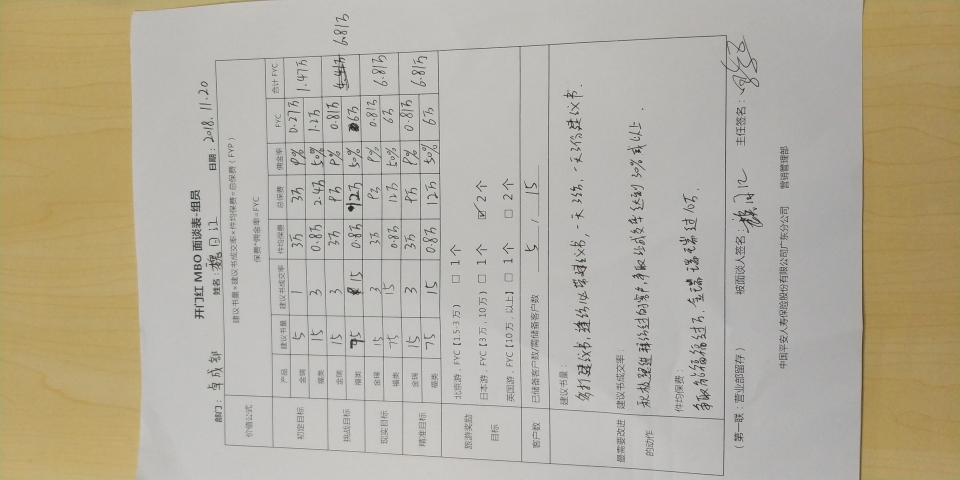 开门红 MBO 面谈表-组员
部门：卓成部 姓名：魏日江 日期：2018.11.20
价值公式 建议书量×建议书成交率×件均保费=总保费（FYP）
保费*佣金率=FYC
产品 建议书量 建议书成交率 件均保费 总保费 佣金率 FYC 合计 FYC
初定目标 金瑞 5 1 3万 3万 9% 0.27万 1.47万
福类 15 3 0.8万 2.4万 50% 1.2万
挑战目标 金瑞 15 3 3万 9万 9% 0.81万 6.81万
福类 75 15 0.8万 12万 50% 6万
现实目标 金瑞 15 3 3万 9万 9% 0.81万 6.81万
福类 75 15 0.8万 12万 50% 6万
精准目标 金瑞 15 3 3万 9万 9% 0.81万 6.81万
福类 75 15 0.8万 12万 50% 6万
旅游奖励目标 北京游，FYC【1.5-3万） □ 1个
日本游，FYC【3万，10万） □ 1个 ☑ 2个
英国游，FYC【10万，以上】 □ 1个 □ 2个
客户数 已储备客户数/需储备客户数 5 / 15
最需要改进的动作
建议书量：
多打建议书，逢访必带建议书，一天3访，一天3份建议书．
建议书成交率：
积极整理拜访过的客户，争取成交率达到50%或以上．
件均保费：
争取年福福福过万，金瑞瑞瑞过10万．
（第一联：营业部留存） 被面谈人签名：魏日江 主任签名：
中国平安人寿保险股份有限公司广东分公司 营销管理部